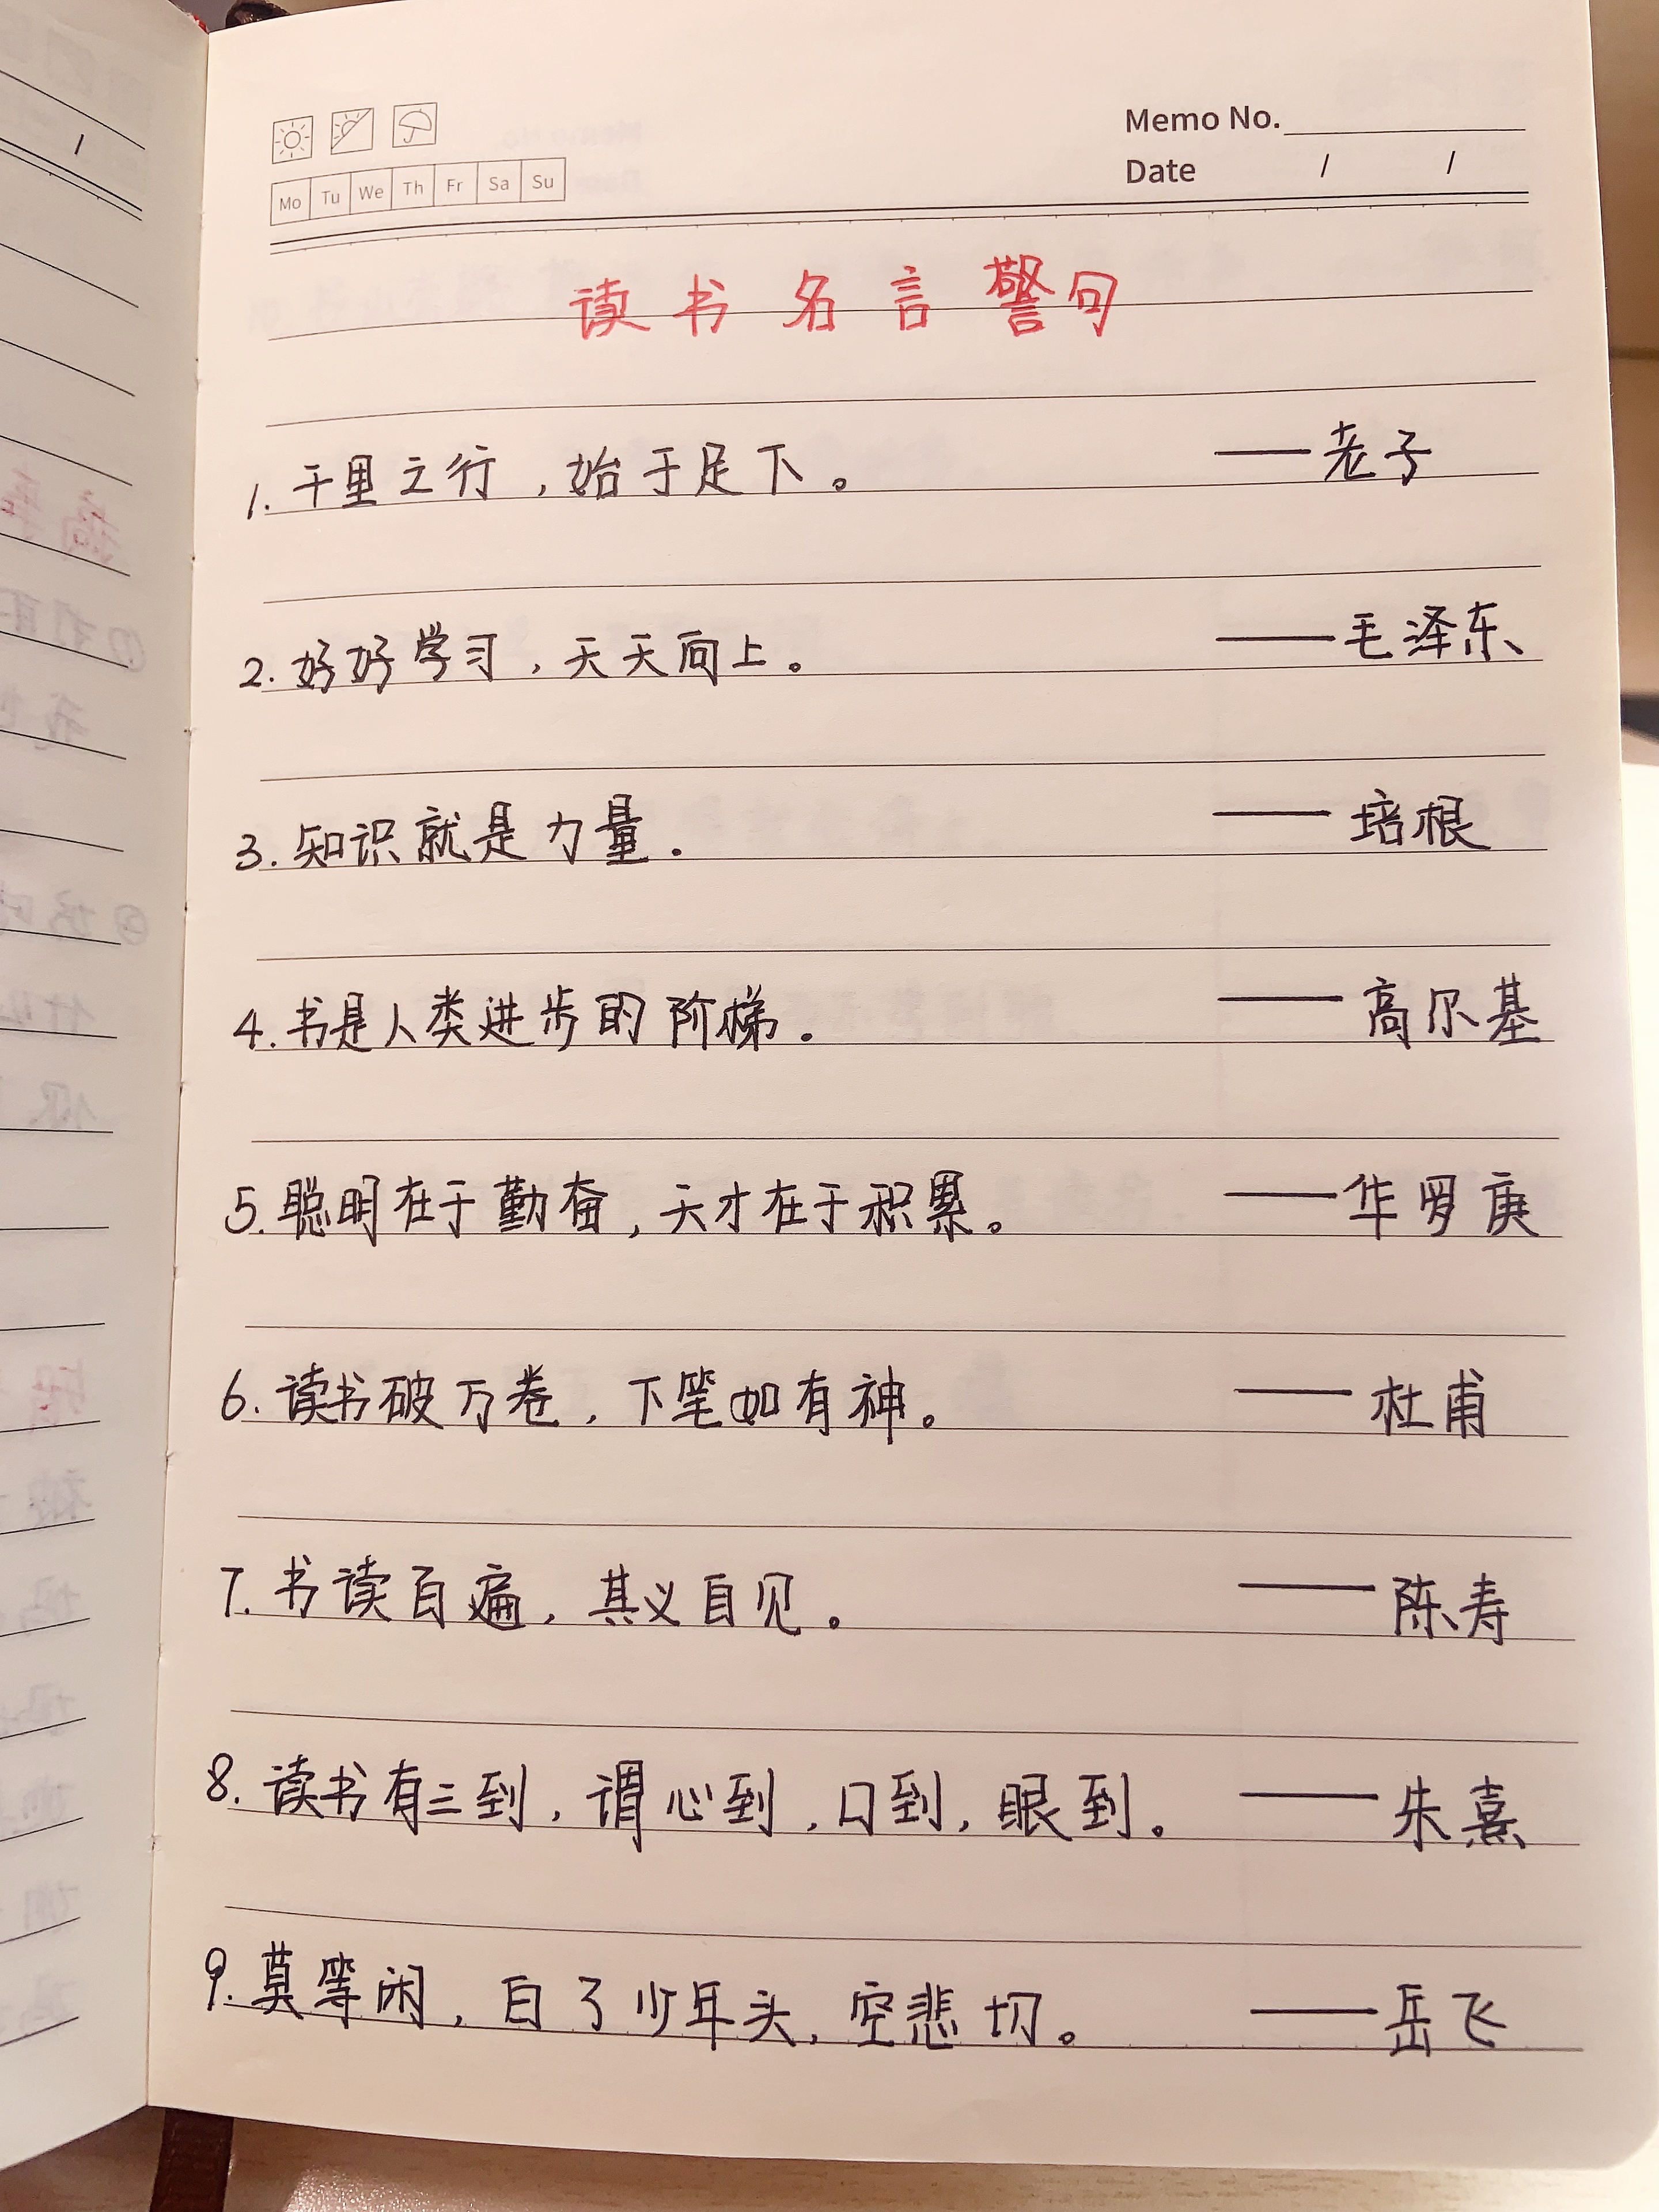 Memo No.
Mo Tu We Th Fr Sa Su
Date / /
读书名言警句
1. 千里之行，始于足下。 ——老子
2. 好好学习，天天向上。 ——毛泽东
3. 知识就是力量. ——培根
4. 书是人类进步的阶梯. ——高尔基
5. 聪明在于勤奋，天才在于积累。 ——华罗庚
6. 读书破万卷，下笔如有神。 ——杜甫
7. 书读百遍，其义自见。 ——陈寿
8. 读书有三到，谓心到，口到，眼到。 ——朱熹
9. 莫等闲，白了少年头，空悲切。 ——岳飞